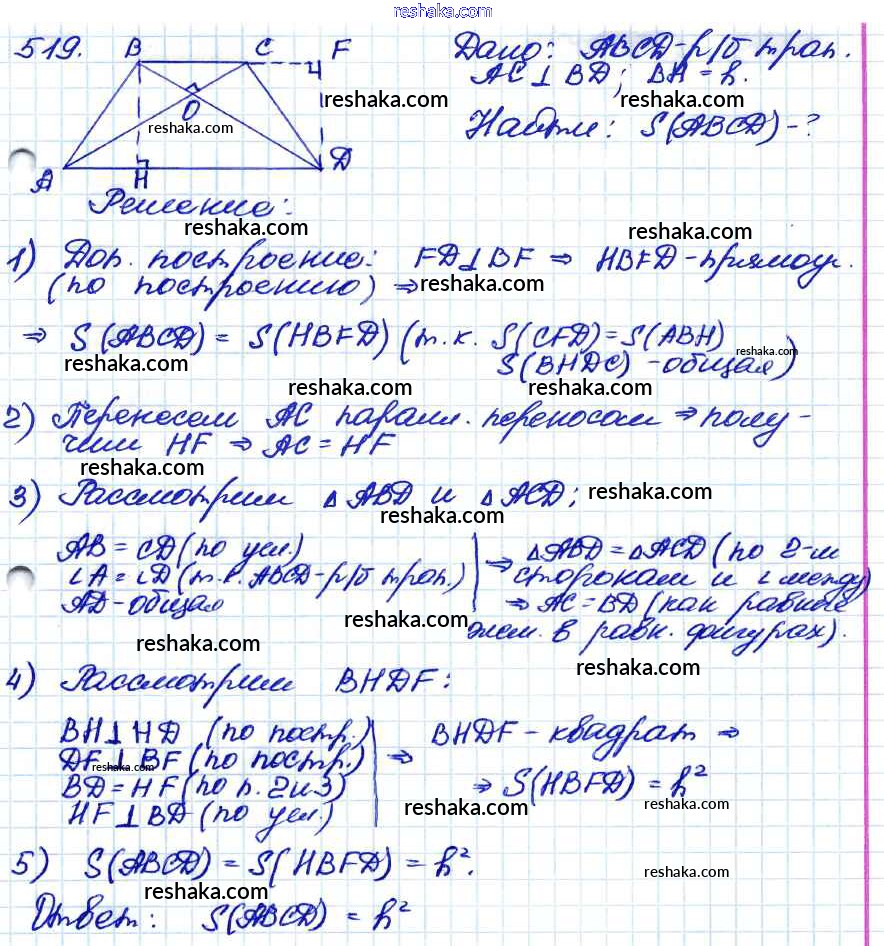 reshaka.com
519. B C F Дано: ABCD-р/б трап.
AC⊥BD; BH = h.
reshaka.com reshaka.com
O reshaka.com Найти: S(ABCD)-?
A H D
Решение:
reshaka.com reshaka.com
1) Доп. построение: FD⊥BF ⇒ HBFD-прямоуг.
(по построению) ⇒ reshaka.com reshaka.com
⇒ S(ABCD) = S(HBFD) (т.к. S(CFD)=S(ABH)
reshaka.com S(BHDC) -общая) reshaka.com
reshaka.com reshaka.com
2) Перенесем AC паралл. переносом ⇒ полу-
чим HF ⇒ AC = HF
reshaka.com
3) Рассмотрим △ABD и △ACD; reshaka.com
reshaka.com
AB = CD (по усл.) ⇒ △ABD = △ACD (по 2-м
∠A = ∠D (т.к. ABCD-р/б трап.) сторонам и ∠ между)
AD-общая ⇒ AC = BD (как равные
reshaka.com
эл. в равн. фигурах).
reshaka.com reshaka.com
4) Рассмотрим BHDF:
BH⊥HD (по постр.) ⇒ BHDF - квадрат ⇒
DF⊥BF (по постр.)
reshaka.com
BD = HF (по п. 2 и 3) ⇒ S(HBFD) = h²
HF⊥BD (по усл.) reshaka.com reshaka.com
5) S(ABCD) = S(HBFD) = h².
reshaka.com reshaka.com
Ответ: S(ABCD) = h²